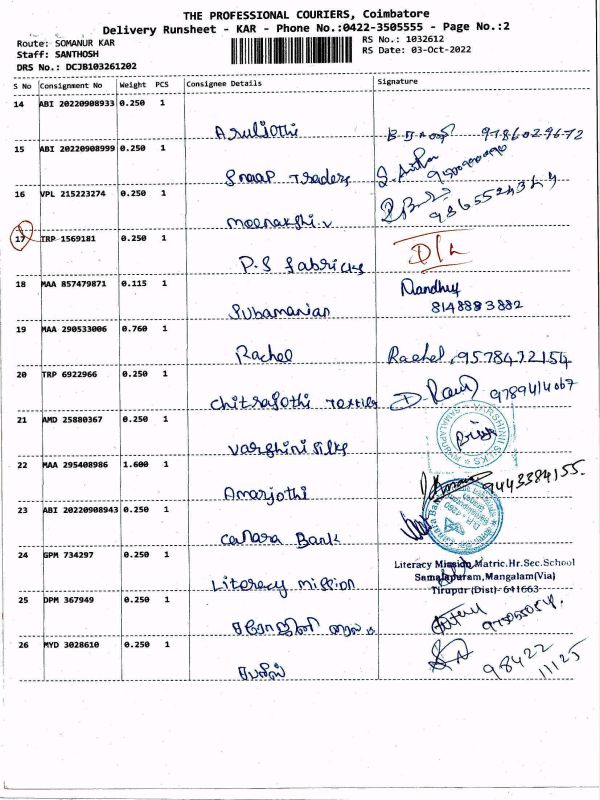 THE PROFESSIONAL COURIERS, Coimbatore
Delivery Runsheet - KAR - Phone No.:0422-3505555 - Page No.:2
Route: SOMANUR KAR RS No.: 1032612
Staff: SANTHOSH RS Date: 03-Oct-2022
DRS No.: DCJB103261202
S No Consignment No Weight PCS Consignee Details Signature
14 ABI 20220908933 0.250 1
Aruljothi 9786029672
15 ABI 20220908999 0.250 1
Snaap Traders
16 VPL 215223274 0.250 1
Meenakshi.v
17 TRP 1569181 0.250 1
P.S fabricks D/L
18 MAA 857479871 0.115 1 Nandhu
Subamanian 8148883882
19 MAA 290533006 0.760 1
Rachel Rachel, 9578472154
20 TRP 6922966 0.250 1
Chitrajothi Textiles 9789414067
21 AMD 25880367 0.250 1
Varshini silks
22 MAA 295408986 1.600 1
Amarjothi 9443384155.
23 ABI 20220908943 0.250 1
Canara Bank
24 GPM 734297 0.250 1 Literacy Mission Matric.Hr.Sec.School
Literacy Mission Samalapuram,Mangalam(Via)
Tirupur (Dist)- 641663
25 DPM 367949 0.250 1
சரோஜினி
26 MYD 3028610 0.250 1
98422
11125